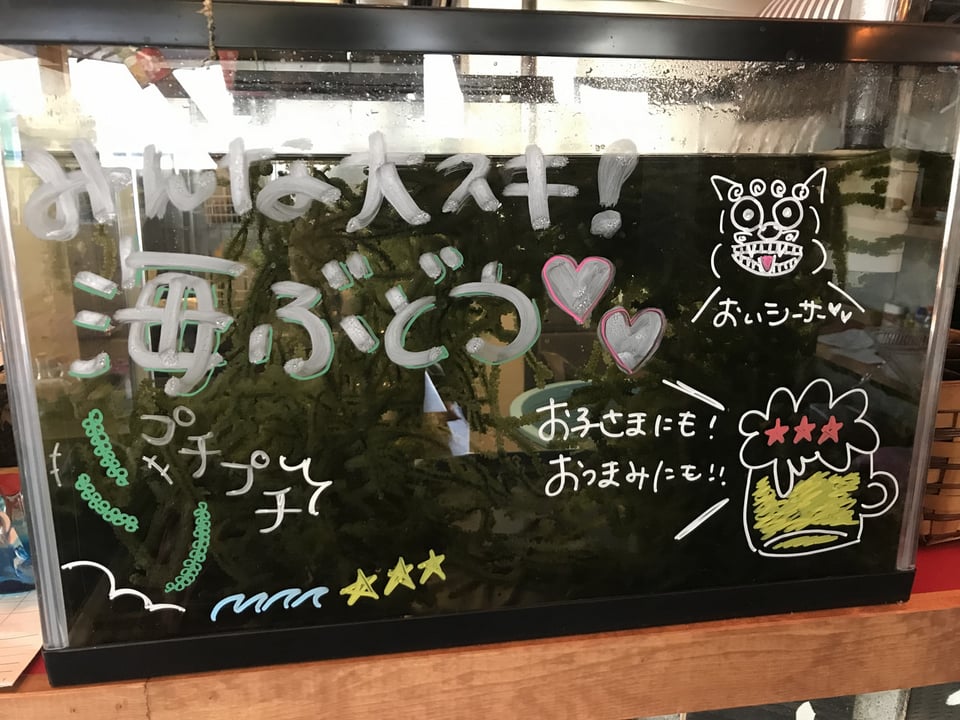 みんな大スキ!
海ぶどう
おぃシーサー
お子さまにも!
おつまみにも!!
プチプチ